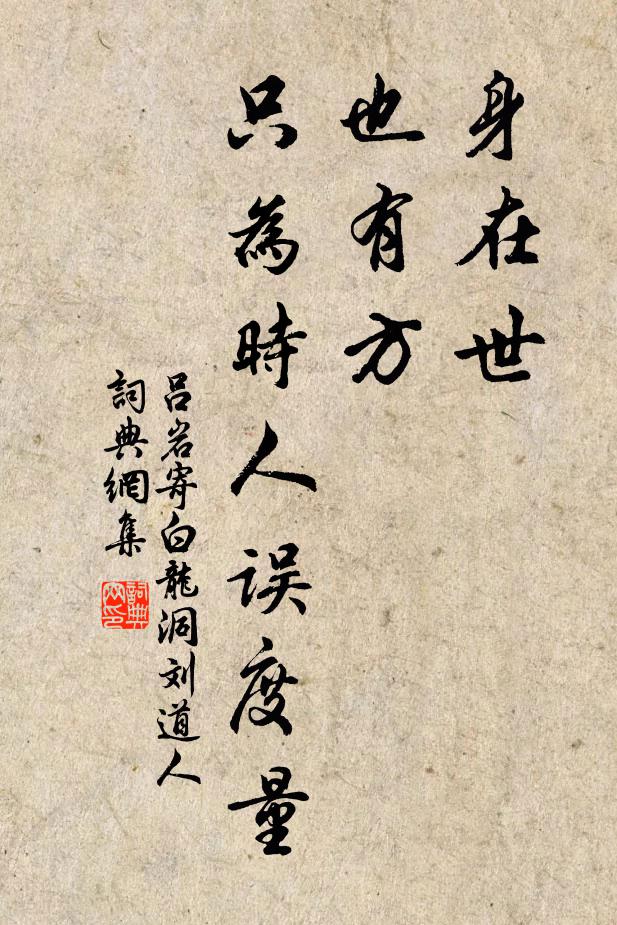 身在世
也有方
只為時人误度量
吕岩寄白龍洞刘道人
詞典網集
詞典網印